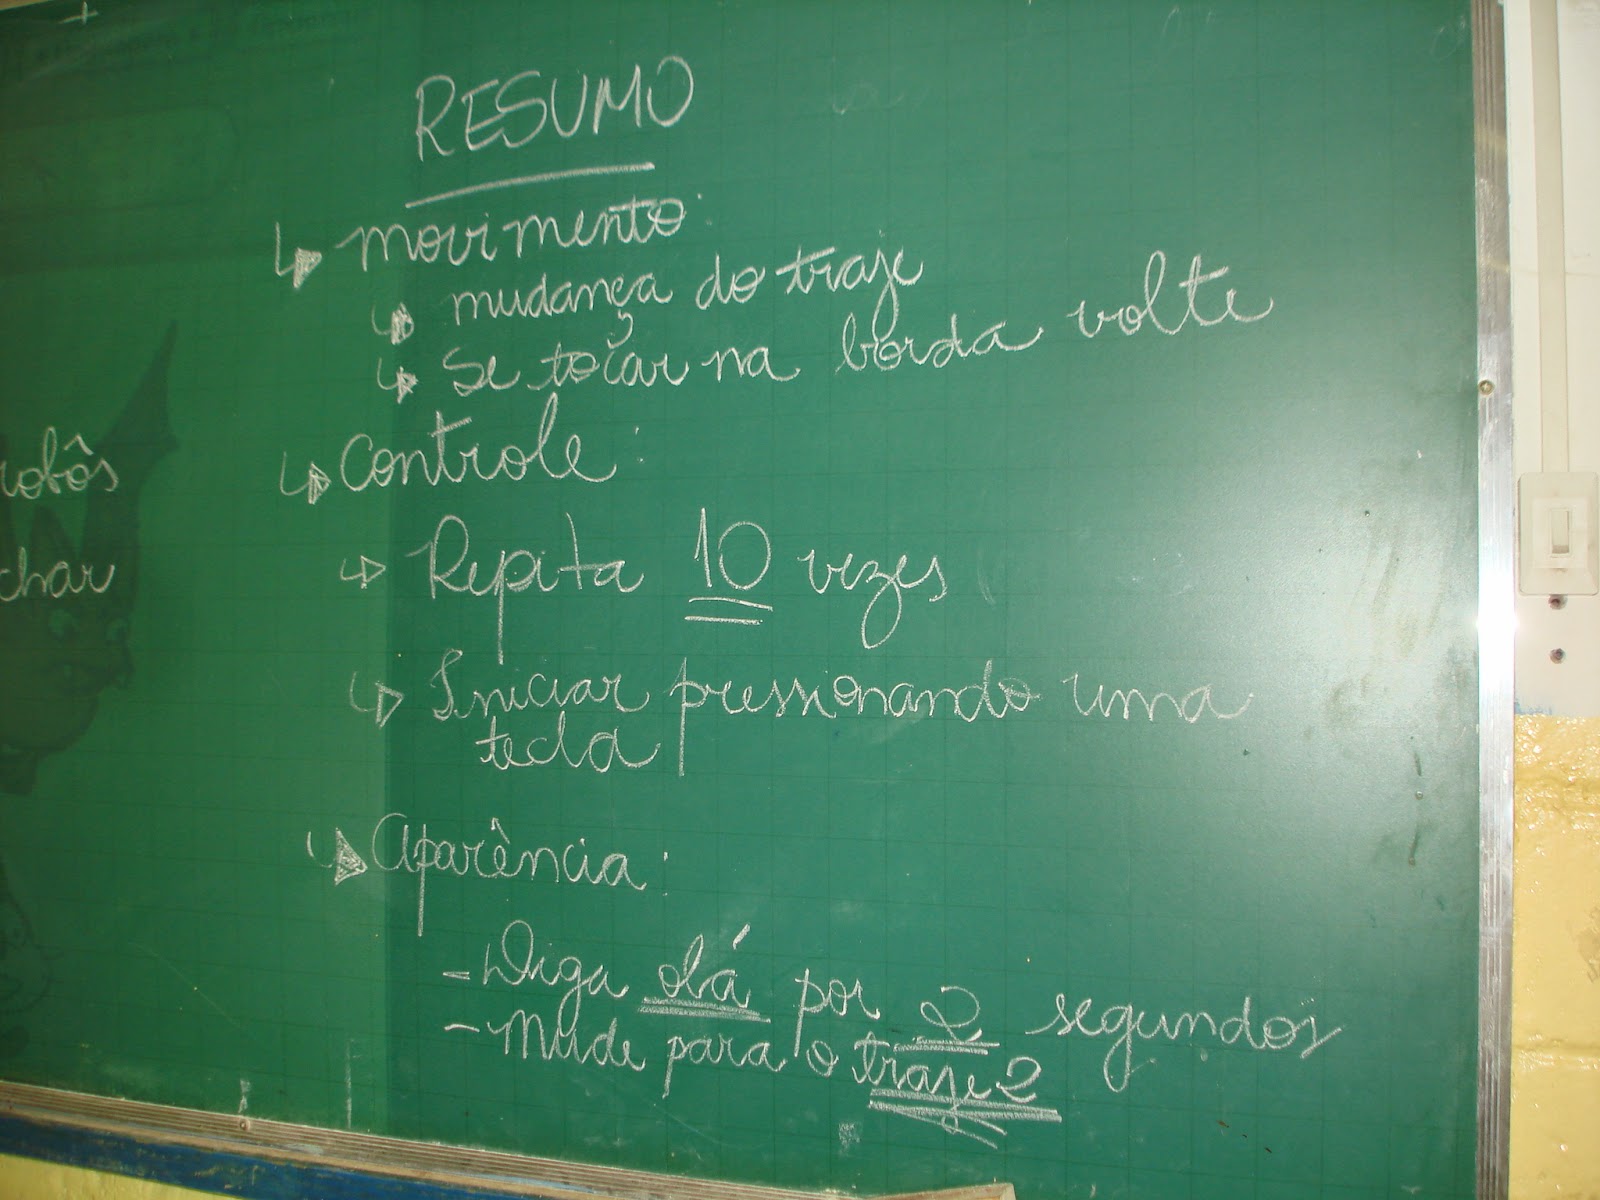 RESUMO
movimento:
mudança do traje
se tocar na borda volte
robôs
Controle:
char
Repita 10 vezes
Iniciar pressionando uma
tecla
Aparência:
- Diga olá por 2 segundos
- Mude para o traje 2